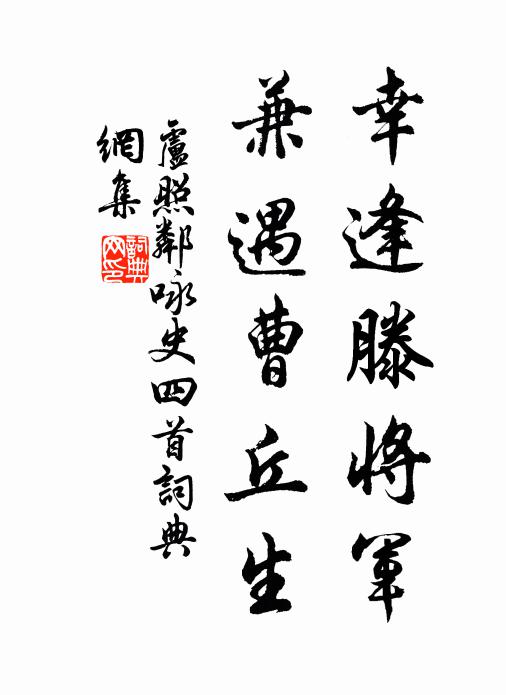 幸逢滕將軍
兼遇曹丘生
盧照鄰咏史四首詞典
網集
詞典
网印